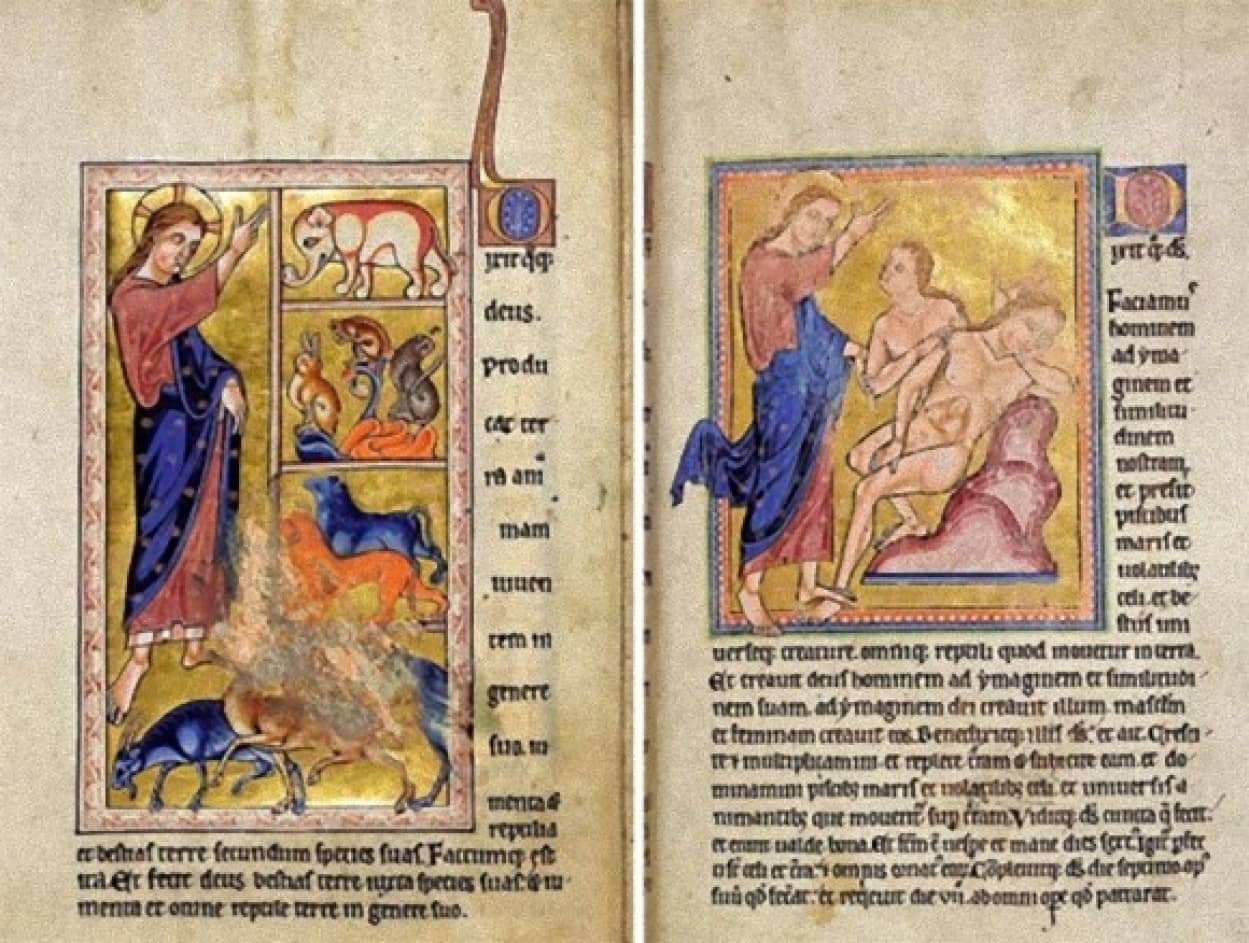 Dixit q̄q̧
deus.
Produ
cat ter
ra ani
mam
uiuen
tem in
genere
suo. iu
menta &
reptilia
et bestias terre secundum species suas. Factumq; est
ita. Et fecit deus bestias terre iuxta species suas. & iu-
menta et omne reptile terre in genere suo.
Dixit q̄. d̄s.
Faciamus
hominem
ad ẏma
ginem et
similitu
dinem
nostram
et presit
piscibus
maris et
uolatilibȝ
celi. et be
stiis uni
uerseq; creature. omniq; reptili quod mouetur in terra.
Et creauit deus hominem ad ẏmaginem et similitudi-
nem suam. ad ẏmaginem dei creauit illum. masculum
et feminam creauit eos. Benedixitq; illis d̄s. et ait. Cresci-
te & multiplicamini et replete t̄ram & subicite eam. et do-
minamini piscibȝ maris et uolatilibȝ celi. et uniuersis a
nimantibȝ que mouent̄ sup t̄ram. Viditq; d̄s cuncta q̄ fecit.
et erant ualde bona. Et f̄c̄m ē uespe et mane dies
celi et t̄ra. & omnis ornat eoȝ. Cōpleuitq; d̄s die septimo op̄
suū q̄d fecāt. et req̄euit die vii. ab omni ope q̄d patrarat.